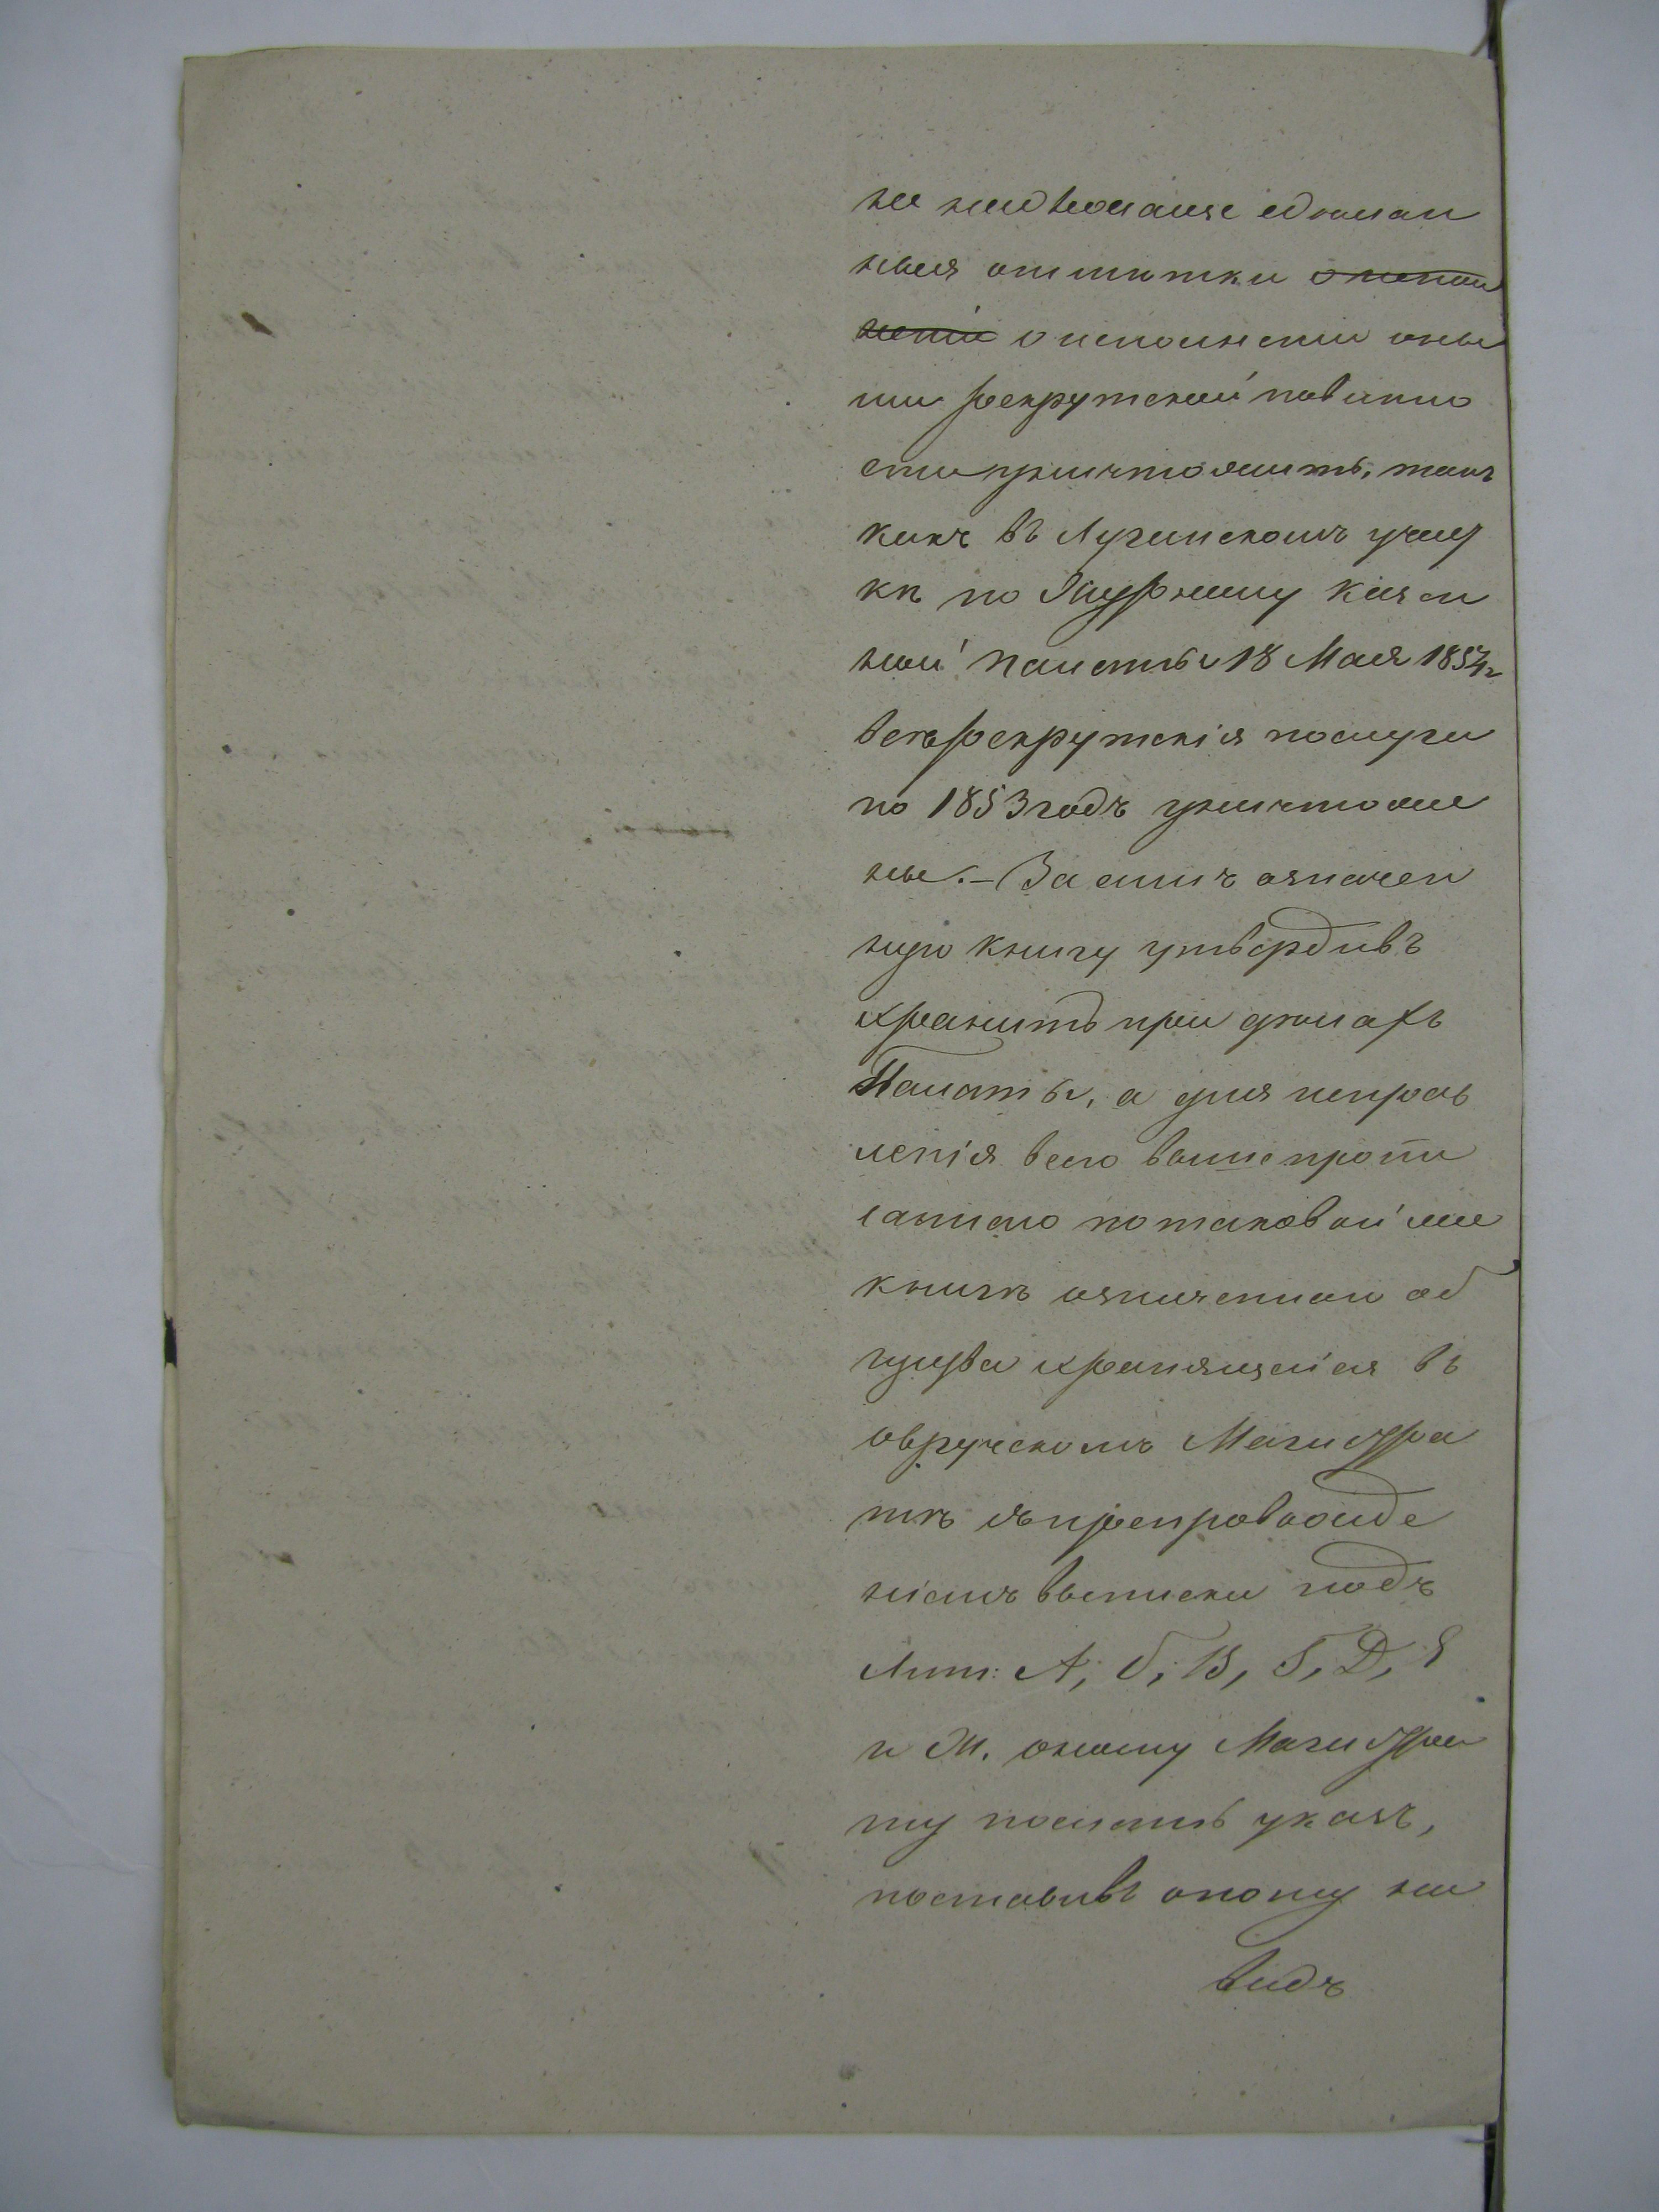 же надлежаще сделан
ныя отметки о испол
неніи о исполненіи оны
ми рекрутской повинно
сти уничтожить, такъ
какъ въ Лугинскомъ участ
ке по Журналу Казен
ной Палаты 18 Мая 1854 г
все рекрутскія послуги
по 1853 годъ уничтоже
ны. – За симъ означен
ную книгу утвердивъ
хранить при делахъ
Палаты, а для исправ
ленія всего вышепропи
саннаго по таковой же
книге означеннаго об
щества хранящейся въ
овручскомъ Магистра
те съ препровожде
ніемъ выписки подъ
Лит: А, Б, В, Г, Д, Е
и Ж. оному Магистра
ту послать указъ,
поставивъ оному на
видъ